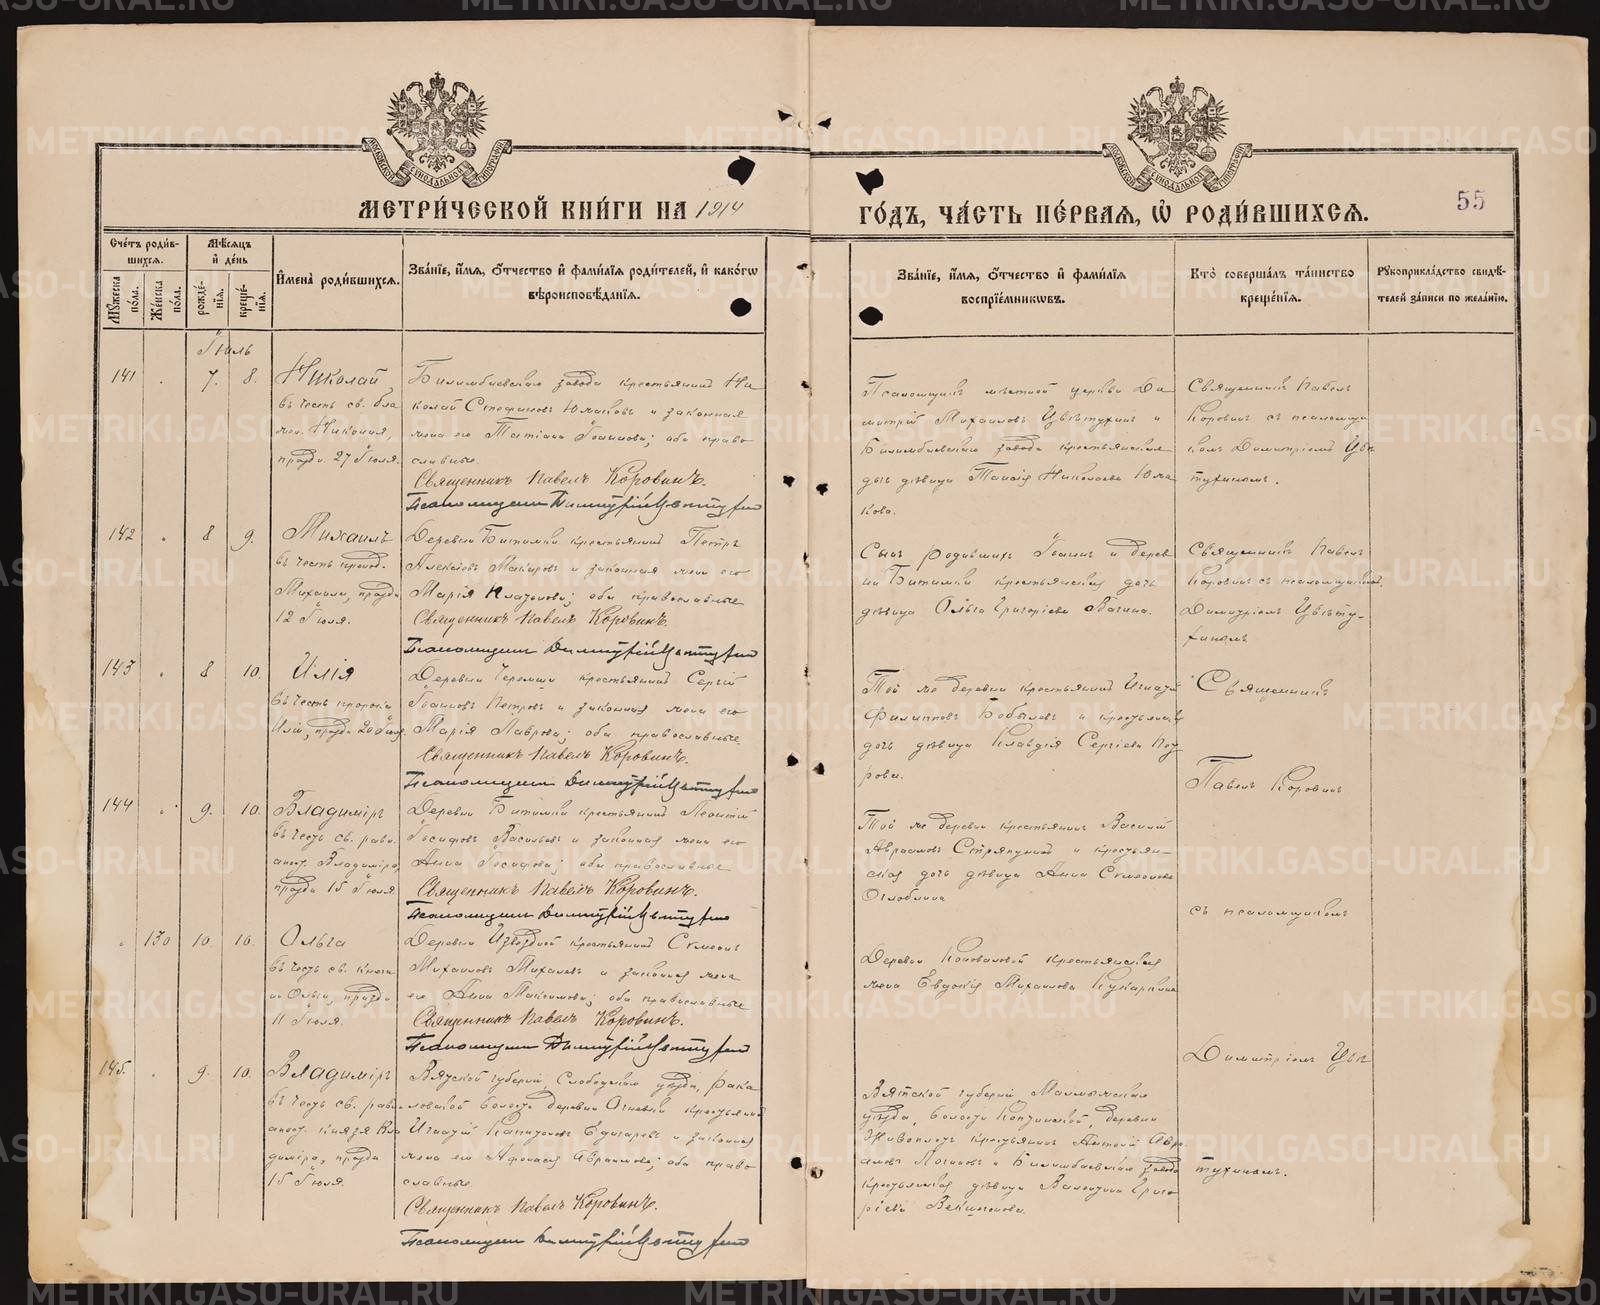 МЕТРИ́ЧЕСКОЙ КНИ́ГИ НА 1914
ГО́ДЪ, ЧА́СТЬ ПЕ́РВАЯ, Ѡ҆ РОДИ́ВШИХСЯ.
55
Сче́тъ роди́в-
шихся.
Мꙋ́жеска по́ла.
Же́нска по́ла.
Мѣ́сяцъ
и҆ де́нь
рожде́-
нїя.
креще́-
нїя.
И҆мена̀ роди́вшихся.
Зва́нїе, и҆́мя, ѻ҆́тчество и҆ фами́лїя роди́телей, и҆ како́гѡ
вѣроисповѣ́данїя.
Зва́нїе, и҆́мя, ѻ҆́тчество и҆ фами́лїя
воспрїе́мникѡвъ.
Кто̀ соверша́лъ та́инство
креще́нїя.
Рꙋкоприкла́дство свидѣ́-
телей за́писи по жела́нїю.
Іюль
141 . 7. 8. Николай,
въ честь св. бла
Николая,
праздн. 27 Іюля.
Билимбаевскаго завода крестьянинъ Ни
колай Стефановъ Юмаковъ и законная
жена его Татіана Іоаннова; оба право
славные.
Священникъ Павелъ Коровинъ.
Псаломщикъ Димитрій Цвѣтухинъ
Псаломщикъ мѣстной церкви Ди
митрій Михаиловъ Цвѣтухинъ и
Билимбаевскаго завода крестьянская
дочь дѣвица Таисія Николаева Юма
кова.
Священникъ Павелъ
Коровинъ съ псаломщи
комъ Димитріемъ Цвѣ
тухинымъ.
142 . 8 9. Михаилъ
въ честь препод.
Михаила, праздн
12 Іюля.
Деревни Битимки крестьянинъ Петръ
Алексѣевъ Макаровъ и законная жена его
Марія Платонова; оба православные
Священникъ Павелъ Коровинъ.
Псаломщикъ Димитрій Цвѣтухинъ
Сынъ родившихъ Іоаннъ и дерев
ни Битимки крестьянская дочь
дѣвица Ольга Григоріева Вагина.
Священникъ Павелъ
Коровинъ съ псаломщикомъ
Димитріемъ Цвѣту-
хинымъ
143 . 8 10. Илія
въ честь пророка
Иліи, праздн 20 Іюля.
Деревни Черемши крестьянинъ Сергій
Іоанновъ Петровъ и законная жена его
Марія Лаврова; оба православные.
Священникъ Павелъ Коровинъ.
Псаломщикъ Димитрій Цвѣтухинъ
Той же деревни крестьянинъ Игнатій
Филипповъ Бобылевъ и крестьянск
дочь дѣвица Клавдія Сергіева Пет
рова.
Священникъ
Павелъ Коровинъ
144 . 9. 10. Владиміръ
въ честь св. равно
апост. Владиміра,
праздн 15 Іюля.
Деревни Битимки крестьянинъ Леонтій
Іосифовъ Васильевъ и законная жена его
Анна Іосифова; оба православные
Священникъ Павелъ Коровинъ.
Псаломщикъ Димитрій Цвѣтухинъ
Той же деревни крестьянинъ Василій
Авраамовъ Стряпунинъ и крестьян-
ская дочь дѣвица Анна Симеонова
Оглоблина
съ псаломщикомъ
. 130 10. 10. Ольга
въ честь св. княги
ни Ольги, праздн
11 Іюля.
Деревни Извездной крестьянинъ Симеонъ
Михаиловъ Михалевъ и законная жена
его Анна Максимова; оба православные
Священникъ Павелъ Коровинъ.
Псаломщикъ Димитрій Цвѣтухинъ
Деревни Коноваловой крестьянская
жена Евдокія Михаилова Кукаркина
Димитріемъ Цвѣ
145. . 9. 10. Владиміръ
въ честь св. равно
апост. князя Вла
диміра, праздн
15 Іюля.
Вятской губерніи, Слободскаго уѣзда, Рака
ловской волости деревни крестьянинъ
Игнатій и законная
жена его Афанасія Авраамова; оба право
славные.
Священникъ Павелъ Коровинъ.
Псаломщикъ Димитрій Цвѣтухинъ
Вятской губерніи, Малмыжскаго
уѣзда, волости деревни
крестьянинъ Антоній Авра
амовъ Логиновъ и Билимбаевскаго завода
крестьянская дѣвица Валентина Григо
ріева
тухинымъ.
METRIKI.GASO-URAL.RU